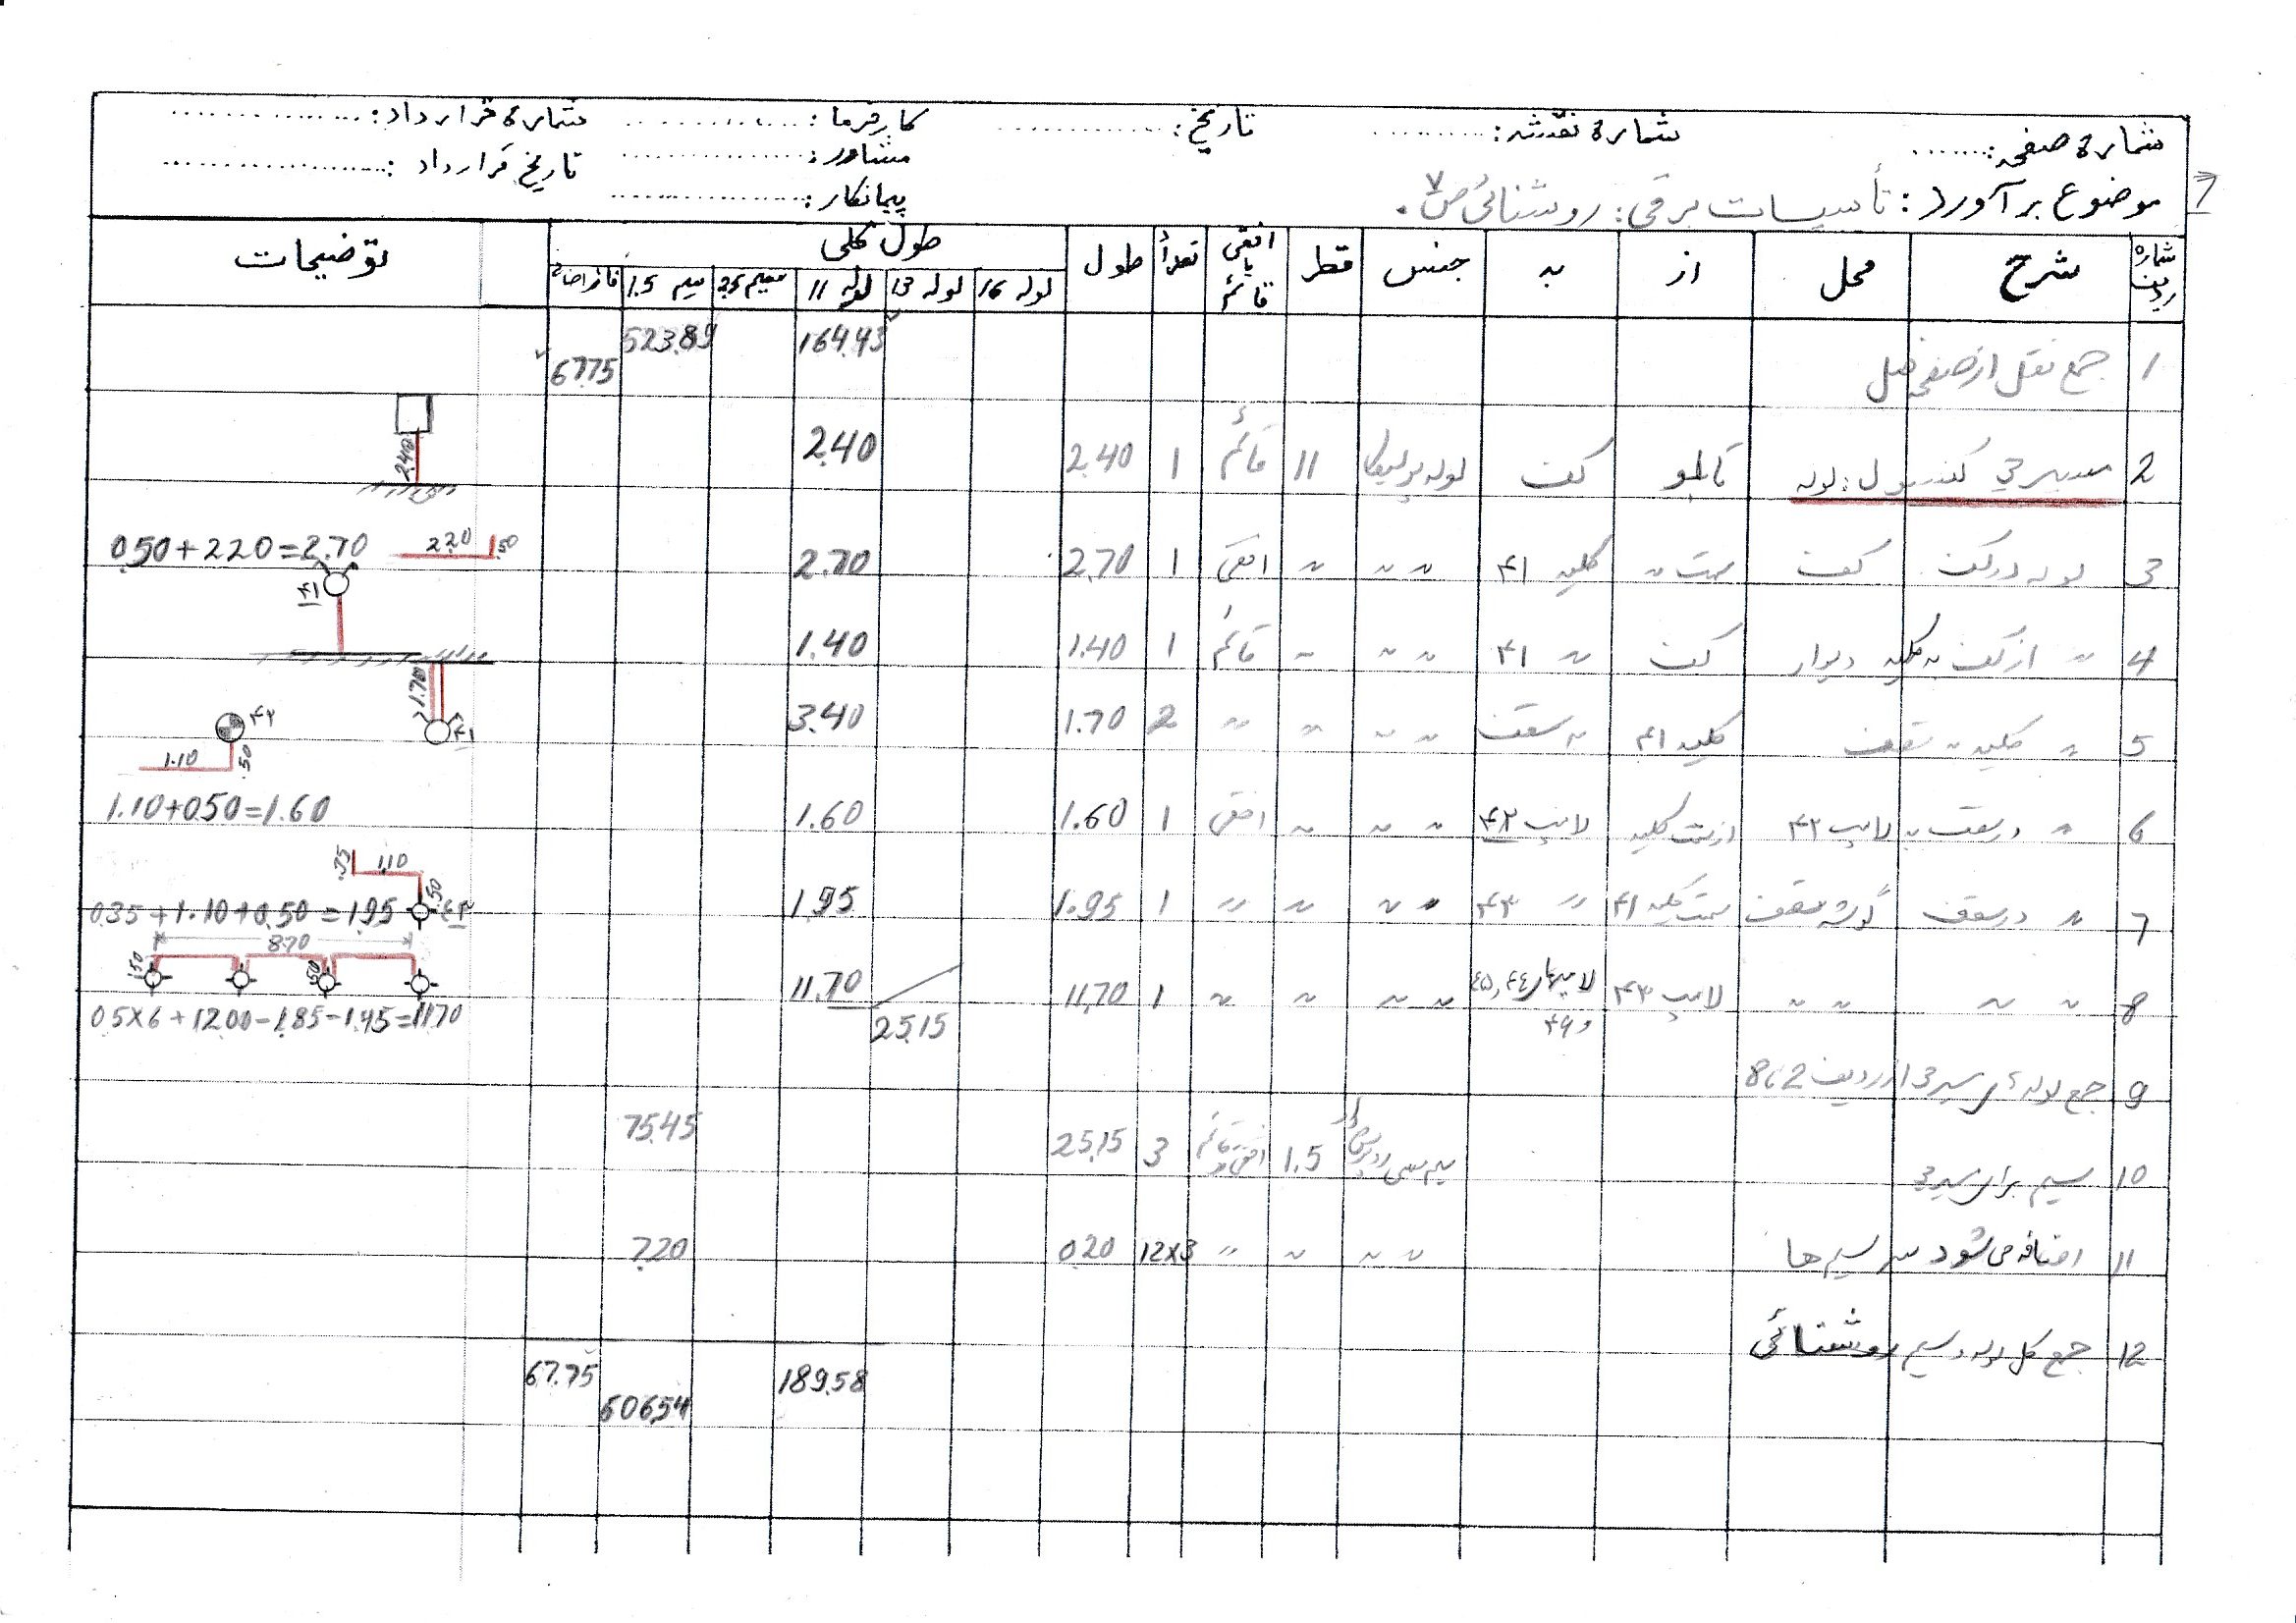 شماره صفحه: ....... شماره نقشه: .......... تاریخ: .............. کارفرما: ............. شماره قرارداد: ...............
مشاور: ............... تاریخ قرارداد: ..................
7 موضوع برآورد: تأسیسات برقی: روشنائی ص ۷. پیمانکار: ................
شماره ردیف شرح محل از به جنس قطر افقی یا قائم تعداد طول طول کلی توضیحات
لوله 16 لوله 13 لوله 11 سیم 2.5 سیم 1.5
1 جمع نقل از صفحه قبل 164.43 523.89 67.75
2 مسیر 3 کنسول: لوله تابلو کف لوله پولیکا 11 قائم 1 2.40 2.40 2.40
3 لوله در کف کف سمت کلید ۴۱ " " " افقی 1 2.70 2.70 2.20 .50 0.50+2.20=2.70
4 " از کف به کلید دیوار کف " ۴۱ " " " قائم 1 1.40 1.40 ۴۱
5 " کلید به سقف کلید ۴۱ به سقف " " " " 2 1.70 3.40 1.70 ۴۱ ۴۲ 1.10 .50
6 " در سقف به لامپ ۴۲ از سمت کلید لامپ ۴۲ " " " افقی 1 1.60 1.60 1.10+0.50=1.60
7 " در سقف گوشه سقف سمت کلید ۴۱ " ۴۳ " " " " 1 1.95 1.95 .35 1.10 .50 ۴۳ 0.35+1.10+0.50=1.95
8 " " " " لامپ ۴۳ لامپهای ۴۴، ۴۵ و ۴۶ " " " " 1 11.70 11.70 25.15 8.70 .50 .50 0.5×6+12.00-1.85-1.45=11.70
9 جمع لوله مسیر 3 از ردیف 2 تا 8
10 سیم برای مسیر 3 سیم مسی 1.5 افقی و قائم 3 25.15 75.45
11 اضافه می شود سر سیم ها " " " " 12×3 0.20 7.20
12 جمع کل لوله و سیم روشنائی 189.58 606.54 67.75